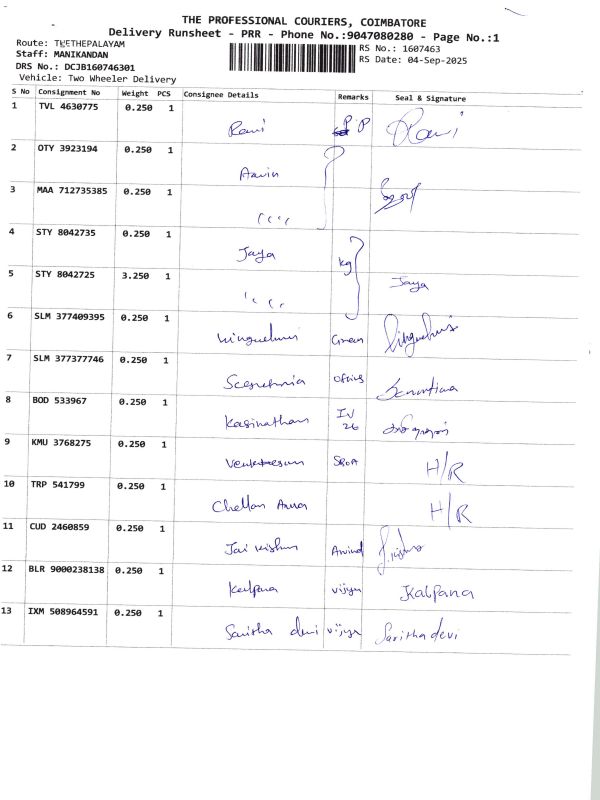 THE PROFESSIONAL COURIERS, COIMBATORE
Delivery Runsheet - PRR - Phone No.:9047080280 - Page No.:1
Route: THETHEPALAYAM
Staff: MANIKANDAN
DRS No.: DCJB160746301
Vehicle: Two Wheeler Delivery
RS No.: 1607463
RS Date: 04-Sep-2025
S No Consignment No Weight PCS Consignee Details Remarks Seal & Signature
1 TVL 4630775 0.250 1 Rani P Rani
2 OTY 3923194 0.250 1
3 MAA 712735385 0.250 1
4 STY 8042735 0.250 1 Jaya kg
5 STY 8042725 3.250 1 Jaya
6 SLM 377409395 0.250 1 Green
7 SLM 377377746 0.250 1
8 BOD 533967 0.250 1 Kasinatham IV 26
9 KMU 3768275 0.250 1 H/R
10 TRP 541799 0.250 1 Chellan H/R
11 CUD 2460859 0.250 1 Arvind
12 BLR 9000238138 0.250 1 Kalpana vijiya Kalpana
13 IXM 508964591 0.250 1 Saritha devi vijiya Saritha devi